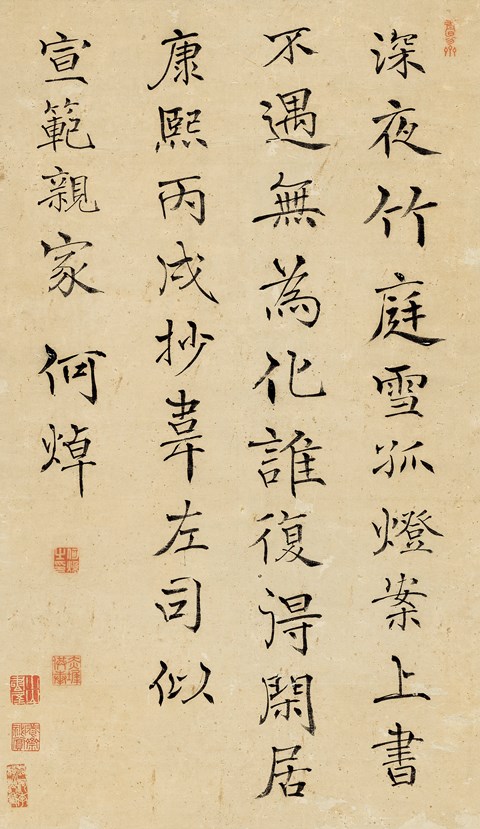 深夜竹庭雪孤燈案上書
不遇無為化誰復得閑居
康熙丙戌抄韋左司似
宣範親家 何焯